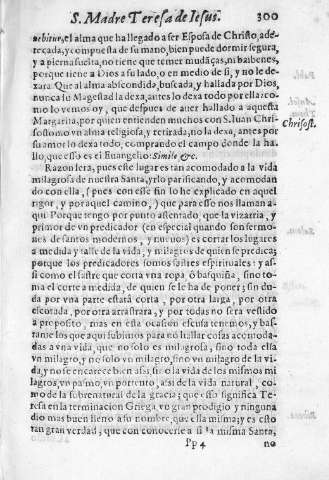 S. Madre Teresa de Iesus. 300
uebitur, el alma que ha llegado a ser Esposa de Christo, ade-
reçada, y compuesta de su mano, bien puede dormir segura,
y a pierna suelta, no tiene que temer mudãças, ni baibenes,
porque tiene a Dios a su lado, o en medio de si, y no le de-
xara. Que al alma absconddida, buscada, y hallada por Dios,
nunca su Magestad la dexa, antes lo dexa todo por ella: co-
mo lo vemos oy, que despues de auer hallado a aquesta
Margarita, por quien entienden muchos con S. Iuan Chri-
sostomo vn alma religiosa, y retirada, no la dexa, antes por
su amor lo dexa todo, comprando el campo donde la ha-
lló, que esso es el Euangelio: Simile &c.
Chrisost.
Razon sera, pues este lugar es tan acomodado a la vida
milagrosa de nuestra Santa, yrlo parificando, y acomodan
do con ella, (pues con esse fin lo he explicado en aquel
rigor, y por aquel camino,) que para esso nos llaman a-
qui. Porque tengo por punto assentado, que la vizarria, y
primor de vn predicador (en especial quando son sermo-
nes de santos modernos, y nueuos) es cortar los lugares
a medida y talle de la vida, y milagros de quien se predica;
porque los predicadores somos sastres espirituales: y as-
si como el sastre que corta vna ropa ò basquiña, sino to-
ma el corte a medida, de quien se le ha de poner; sin du-
da por vna parte estarà corta, por otra larga, por otra
escotada, por otra arrastrara, y por todas no sera vestido
a proposito, mas en esta ocasion escusa tenemos, y bas-
tante los que aqui subimos para no hallar cosas acomoda-
das a vna vida, que no solo es milagrosa, sino toda ella
vn milagro, y no solo vn milagro, sino vn milagro de la vi-
da, y no se encarece bien assi, sino la vida de los mismos mi
lagros, vn pasmo, vn portento, assi de la vida natural, co-
mo de la subrenatural de la gracia; que esso significa Te-
resa en la terminacion Griega, vn gran prodigio y ninguna
dio mas buen lleno a su nombre, que ella misma; y es esto
tan gran verdad; que con conocerle a si la misma Santa,
Pp 4 no